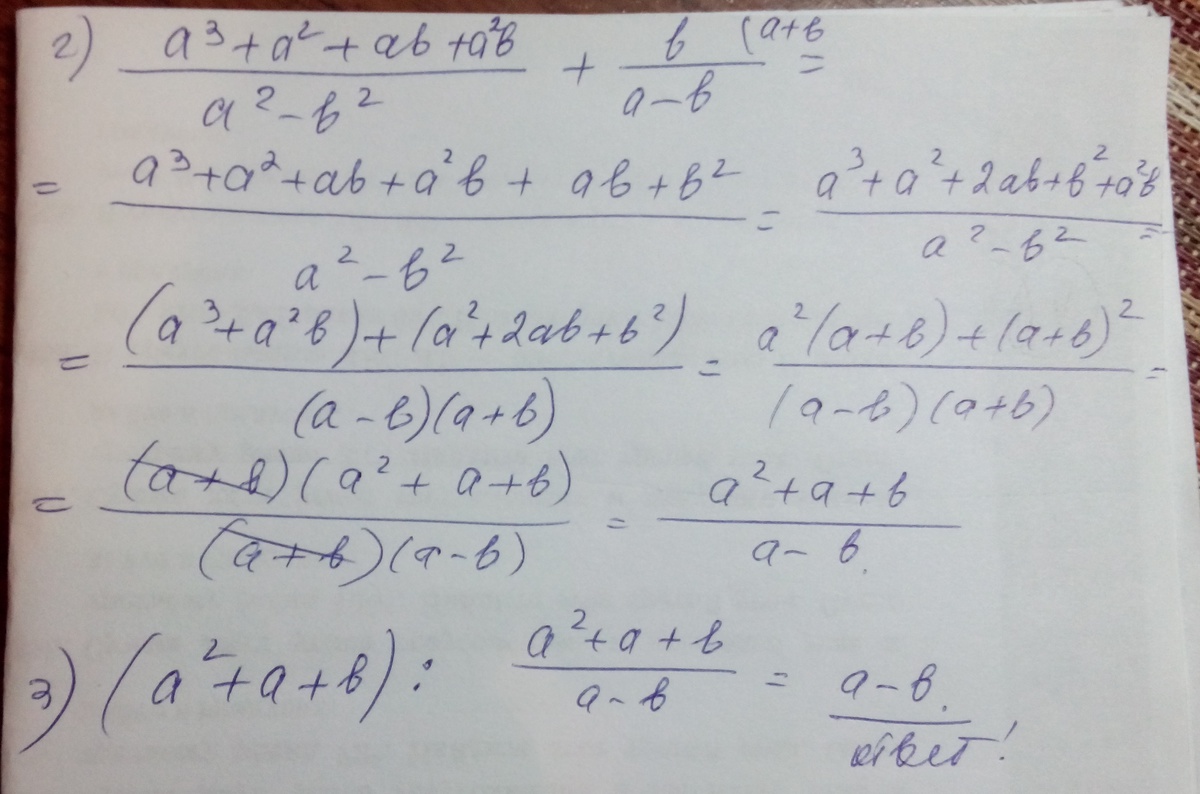 2) (a³ + a² + ab + a²b)/(a² - b²) + b/(a - b) (a+b =
= (a³ + a² + ab + a²b + ab + b²)/(a² - b²) = (a³ + a² + 2ab + b² + a²b)/(a² - b²) =
= ((a³ + a²b) + (a² + 2ab + b²))/((a - b)(a + b)) = (a²(a + b) + (a + b)²)/((a - b)(a + b)) =
= ((a + b)(a² + a + b))/((a + b)(a - b)) = (a² + a + b)/(a - b).
3) (a² + a + b) : (a² + a + b)/(a - b) = a - b.
ответ!